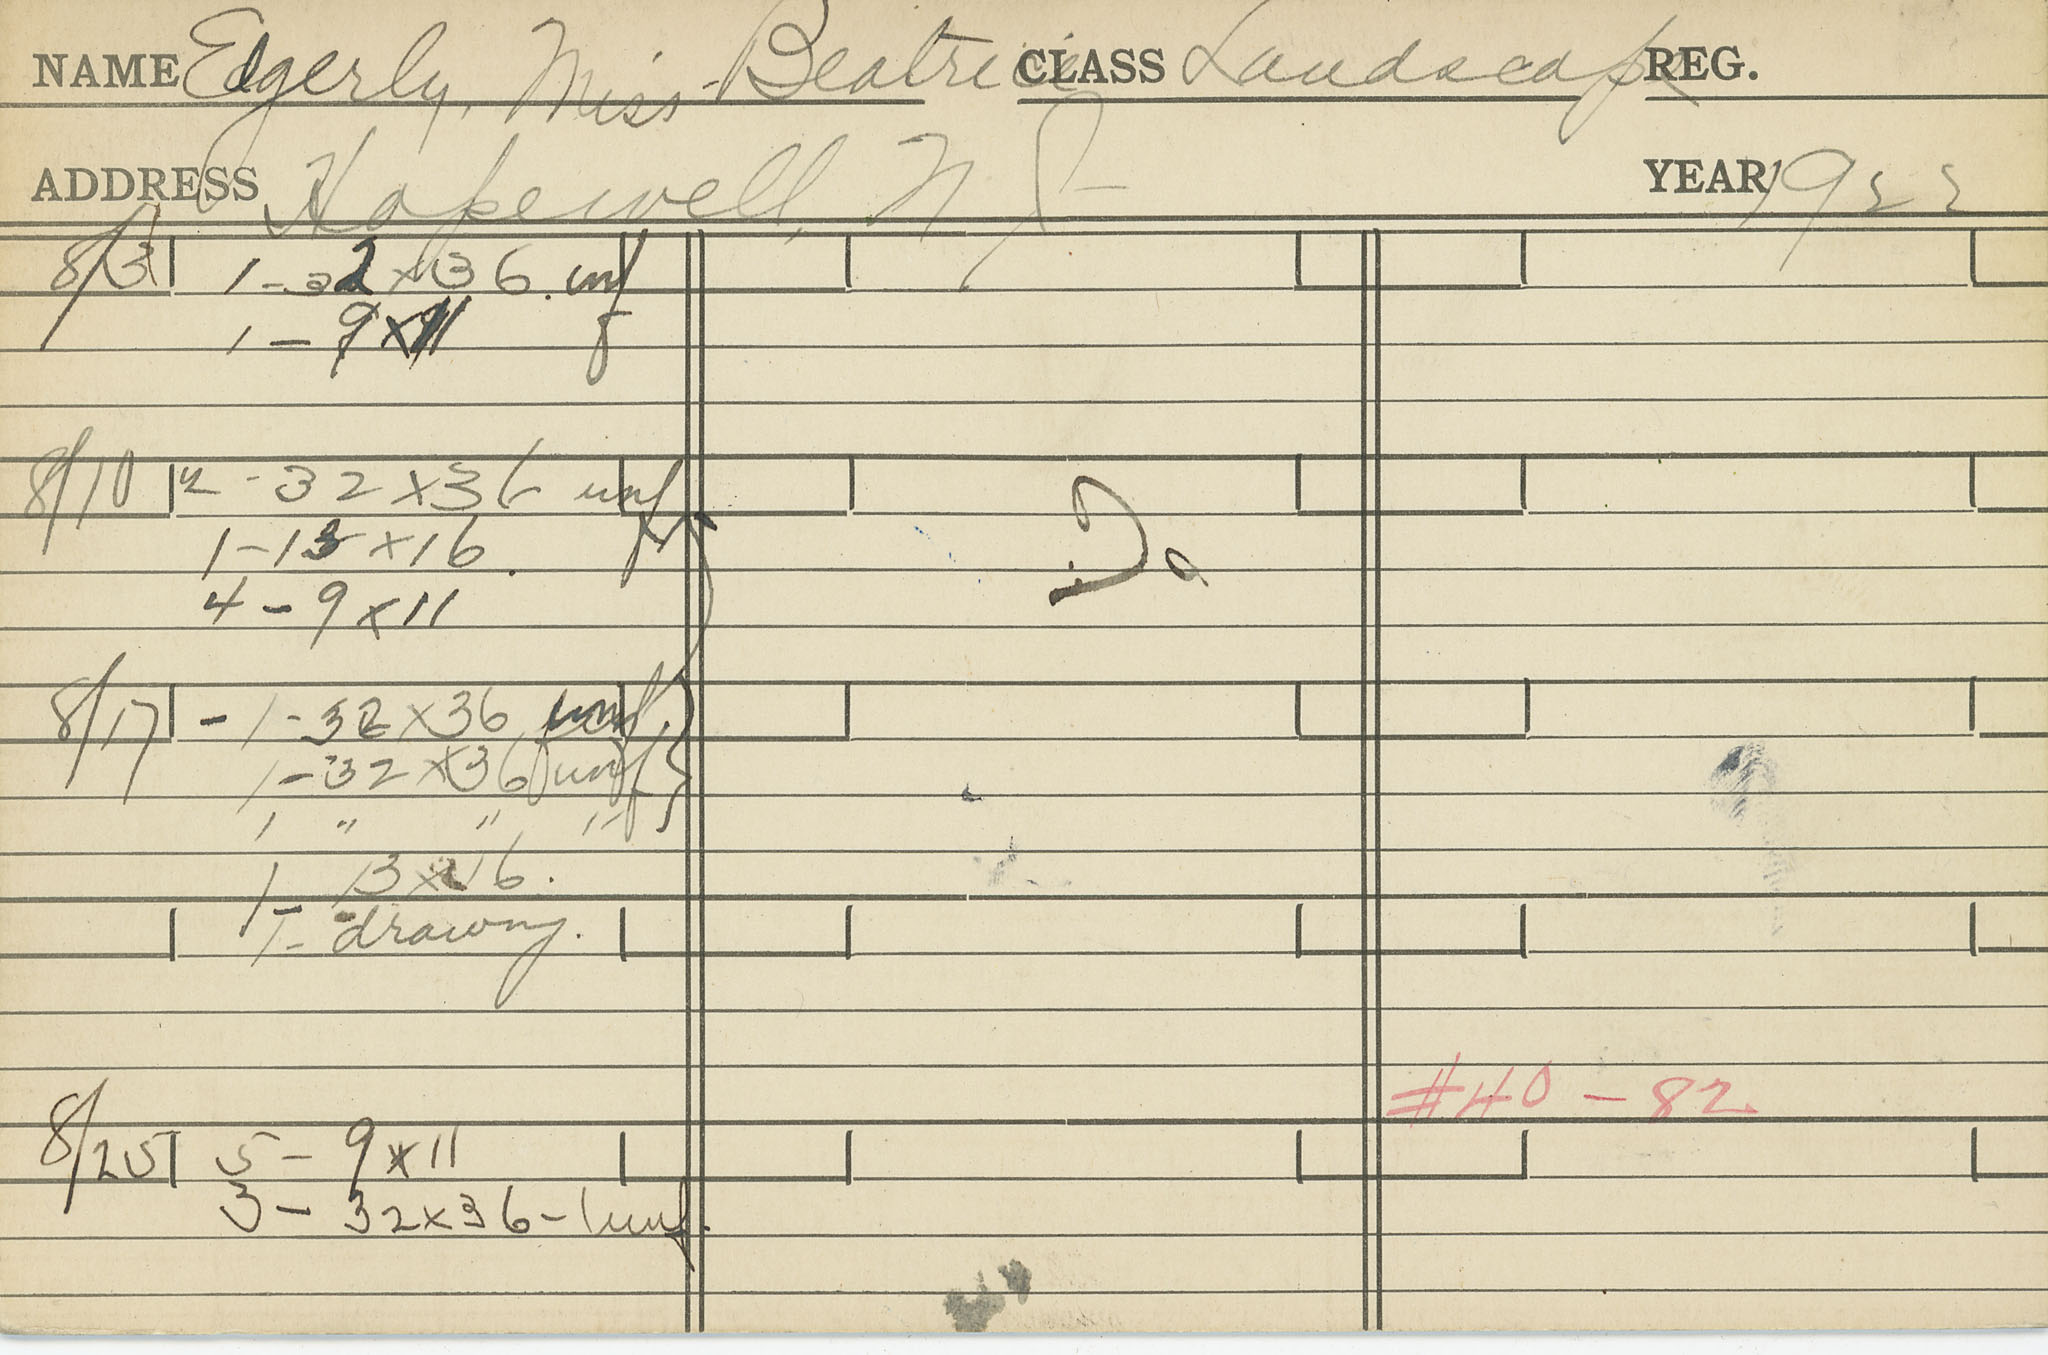 NAME Edgerly, Miss Beatrice CLASS Landscape REG.
ADDRESS Hopewell, N J- YEAR 1922
8/3 1-32x36. unf
1-9x11 f
8/10 2-32x36 unf
1-13x16.
4-9x11
8/17 - 1-32x36 unf.
1-32x36 unf
1 " " "
1- 13x16.
1- drawing.
#40-82
8/25 5- 9x11
3- 32x36-1 unf.